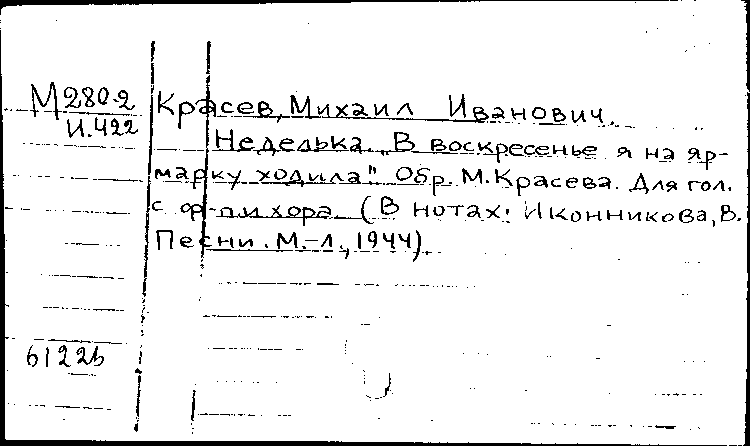 М280-2
И.422
Красев, Михаил Иванович.
Неделька. „В воскресенье я на яр-
марку ходила". Обр. М. Красева. Для гол.
с ф-п. и хора. (В нотах: Иконникова, В.
Песни. М.-Л., 1944).
6122б